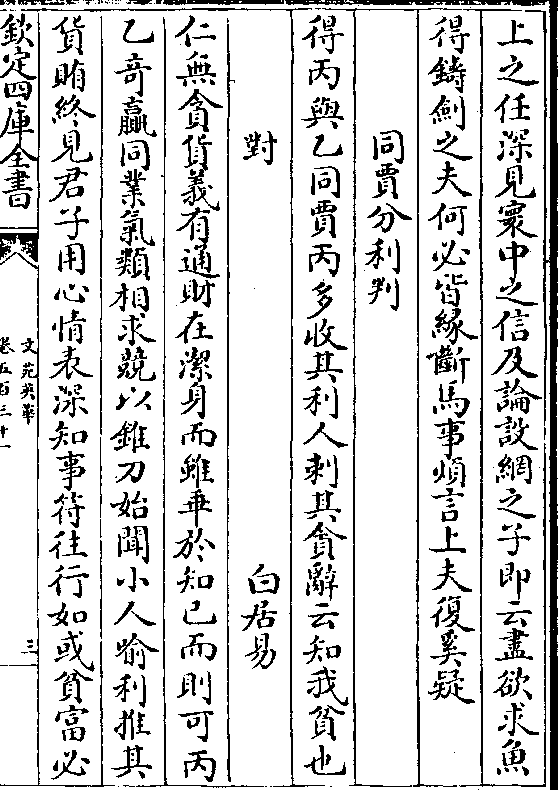 上之任深見寰中之信及論設網之子即云盡欲求魚
得鑄劍之夫何必皆緣斷馬事煩言上夫復奚疑
同賈分利判
得丙與乙同賈丙多收其利人刺其貪辭云知我貧也
對
白居易
仁無貪貨義有通財在潔身而雖乖於知已而則可丙
乙竒贏同業氣類相求競以錐刀始聞小人喻利推其
貨賄終見君子用心情表深知事符往行如或貧富必
欽定四庫全書
文苑英華
卷五百三十一
三